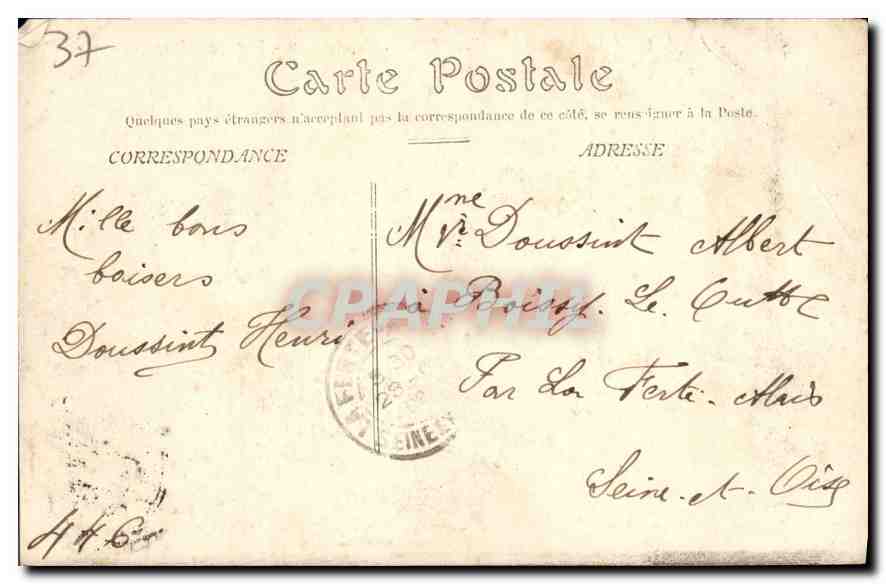 37
Carte Postale
Quelques pays étrangers n'acceptant pas la correspondance de ce côté, se renseigner à la Poste.
CORRESPONDANCE
ADRESSE
Mille bons
baisers
Doussint Henri
Mme Vve Doussint Albert
à Boissy. Le Cutté
Par La Ferté-Alais
Seine-et-Oise
CPAPHIL
LA FERTE
SEINE ET
446